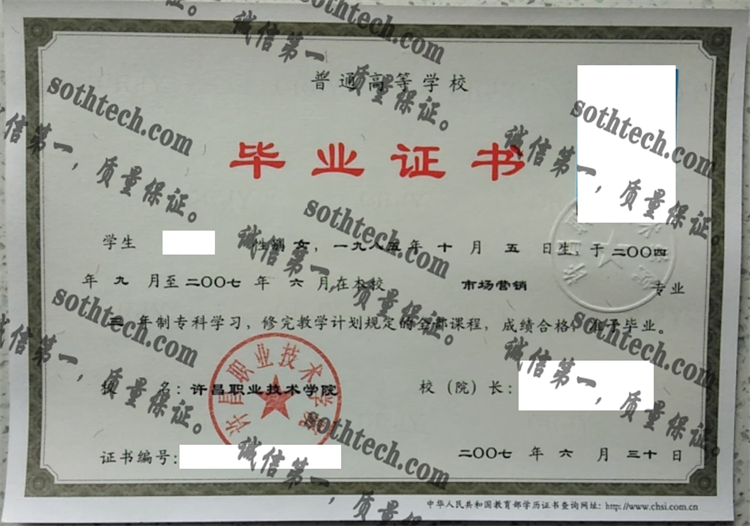 普通高等学校
毕业证书
学生 性别 女,一九八五年 十 月 五 日生,于二〇〇四
年 九 月至二〇〇七 年 六 月在本校 市场营销 专业
三 年制专科学习,修完教学计划规定的全部课程,成绩合格,准予毕业.
校 名:许昌职业技术学院 校(院)长:
许昌职业技术学院
证书编号: 二〇〇七 年 六 月 三十日
中华人民共和国教育部学历证书查询网址: http://www.chsi.com.cn
sothtech.com
诚信第一,质量保证。
sothtech.com
诚信第一,质量保证。
sothtech.com
诚信第一,质量保证。
sothtech.com
诚信第一,质量保证。
sothtech.com
诚信第一,质量保证。
sothtech.com
诚信第一,质量保证。
sothtech.com
诚信第一,质量保证。
sothtech.com
诚信第一,质量保证。
sothtech.com
诚信第一,质量保证。